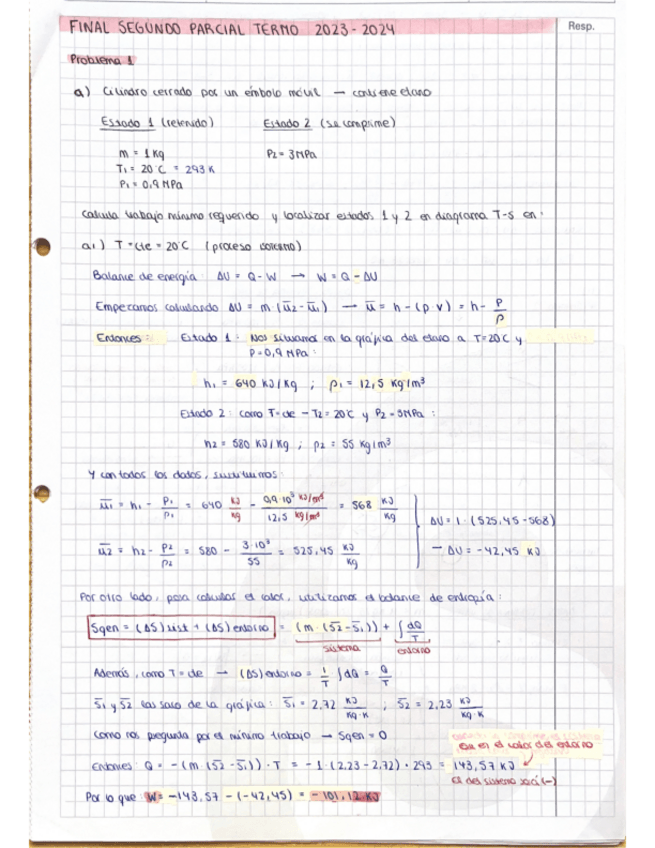 FINAL SEGUNDO PARCIAL TERMO 2023-2024
Resp.
Problema 1
a) Cilindro cerrado por un émbolo móvil → contiene etano
Estado 1 (retenido) Estado 2 (se comprime)
m = 1 Kg P2 = 3 MPa
T1 = 20°C = 293 K
P1 = 0,9 MPa
Calcula trabajo mínimo requerido y localizar estados 1 y 2 en diagrama T-S en:
a1) T = cte = 20°C (proceso isotermo)
Balance de energía: ΔU = Q - W → W = Q - ΔU
Empezamos calculando ΔU = m (ū2 - ū1) → ū = h - (p·v) = h - P/ρ
Entonces: Estado 1: Nos situamos en la gráfica del etano a T=20°C y
P = 0,9 MPa:
h1 = 640 KJ/Kg ; ρ1 = 12,5 Kg/m³
Estado 2: como T = cte → T2 = 20°C y P2 = 3MPa:
h2 = 580 KJ/Kg ; ρ2 = 55 Kg/m³
Y con todos los datos, sustituimos:
ū1 = h1 - P1/ρ1 = 640 KJ/Kg - 0,9·10³ KJ/m³ / 12,5 Kg/m³ = 568 KJ/Kg
ΔU = 1·(525,45-568)
ū2 = h2 - P2/ρ2 = 580 - 3·10³/55 = 525,45 KJ/Kg
→ ΔU = -42,45 KJ
Por otro lado, para calcular el calor, utilizamos el balance de entropía:
Sgen = (ΔS)sist + (ΔS)entorno = (m·(s̄2-s̄1)) + ∫dQ/T
sistema entorno
Además, como T = cte → (ΔS)entorno = 1/T ∫dQ = Q/T
s̄1 y s̄2 las saco de la gráfica: s̄1 = 2,72 KJ/Kg·K ; s̄2 = 2,23 KJ/Kg·K
Como nos pregunta por el mínimo trabajo → Sgen = 0
Este es el calor del entorno
Entonces: Q = -(m·(s̄2-s̄1))·T = -1·(2,23-2,72)·293 = 143,57 KJ
El del sistema será (-)
Por lo que: W = -143,57 - (-42,45) = -101,12 KJ